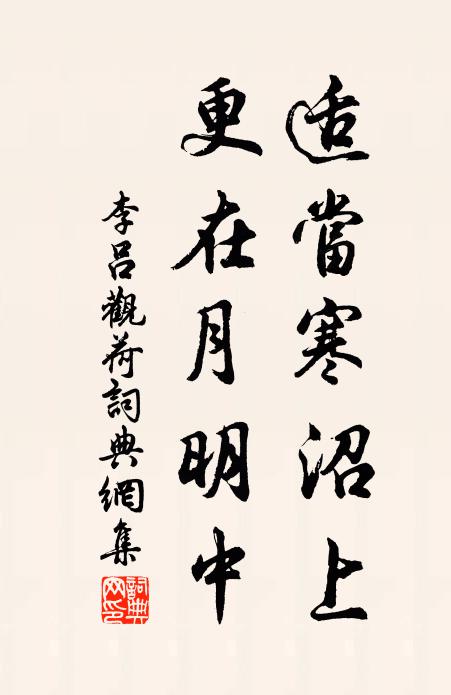 适當寒沼上
更在月明中
李呂觀荷詞典網集
詞典網印